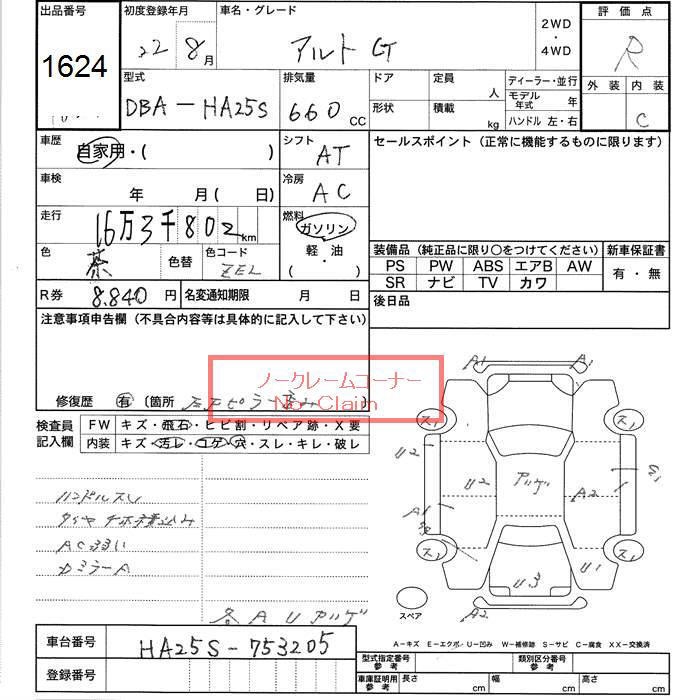 出品番号 初度登録年月 車名・グレード 2WD ・ 4WD 評価点
1624 22 8月 アルト R
外装 内装
C
型式 排気量 ドア 定員 人 ディーラー・並行
DBA-HA25S 660 CC 形状 積載 kg モデル年式 年
ハンドル 左・右
車歴 自家用・( ) シフト AT セールスポイント(正常に機能するものに限ります)
車検 年 月(日) 冷房 AC
走行 16万3千802km 燃料 ガソリン
軽・油
( )
色 茶 色替 色コード ZEL
装備品(純正品に限り○をつけてください) 新車保証書
PS PW ABS エアB AW 有・無
SR ナビ TV カワ
R券 8.840円 名変通知期限 月 日 後日品
注意事項申告欄(不具合内容等は具体的に記入して下さい)
ノークレームコーナー
No Claim
修復歴 有 (箇所 ピラー
検査員記入欄 FW キズ・飛石・ヒビ割・リペア跡・X要
内装 キズ・汚レ・コゲ・穴・スレ・キレ・破レ
ハンドルスレ
タイヤ
AC弱い
ドミラーA
各AUアゲ
A1 A1
ス1 ス1
U2 U2 アリゲ A2
A1
ス1 ス1
U3 U1
スペア A2
A-キズ E-エクボ U-凹み W-補修跡 S-サビ C-腐食 XX-交換済
車台番号 HA25S-753205
型式指定番号 参考 類別区分番号 参考
登録番号 車庫証明用 参考 長さ cm 幅 cm 高さ cm